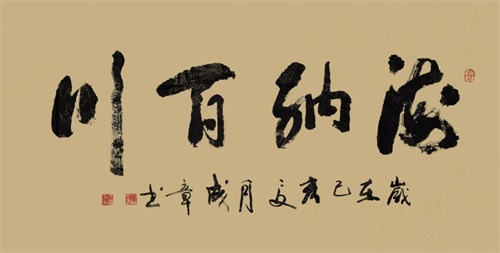 海纳百川
岁在己亥夏月成章书